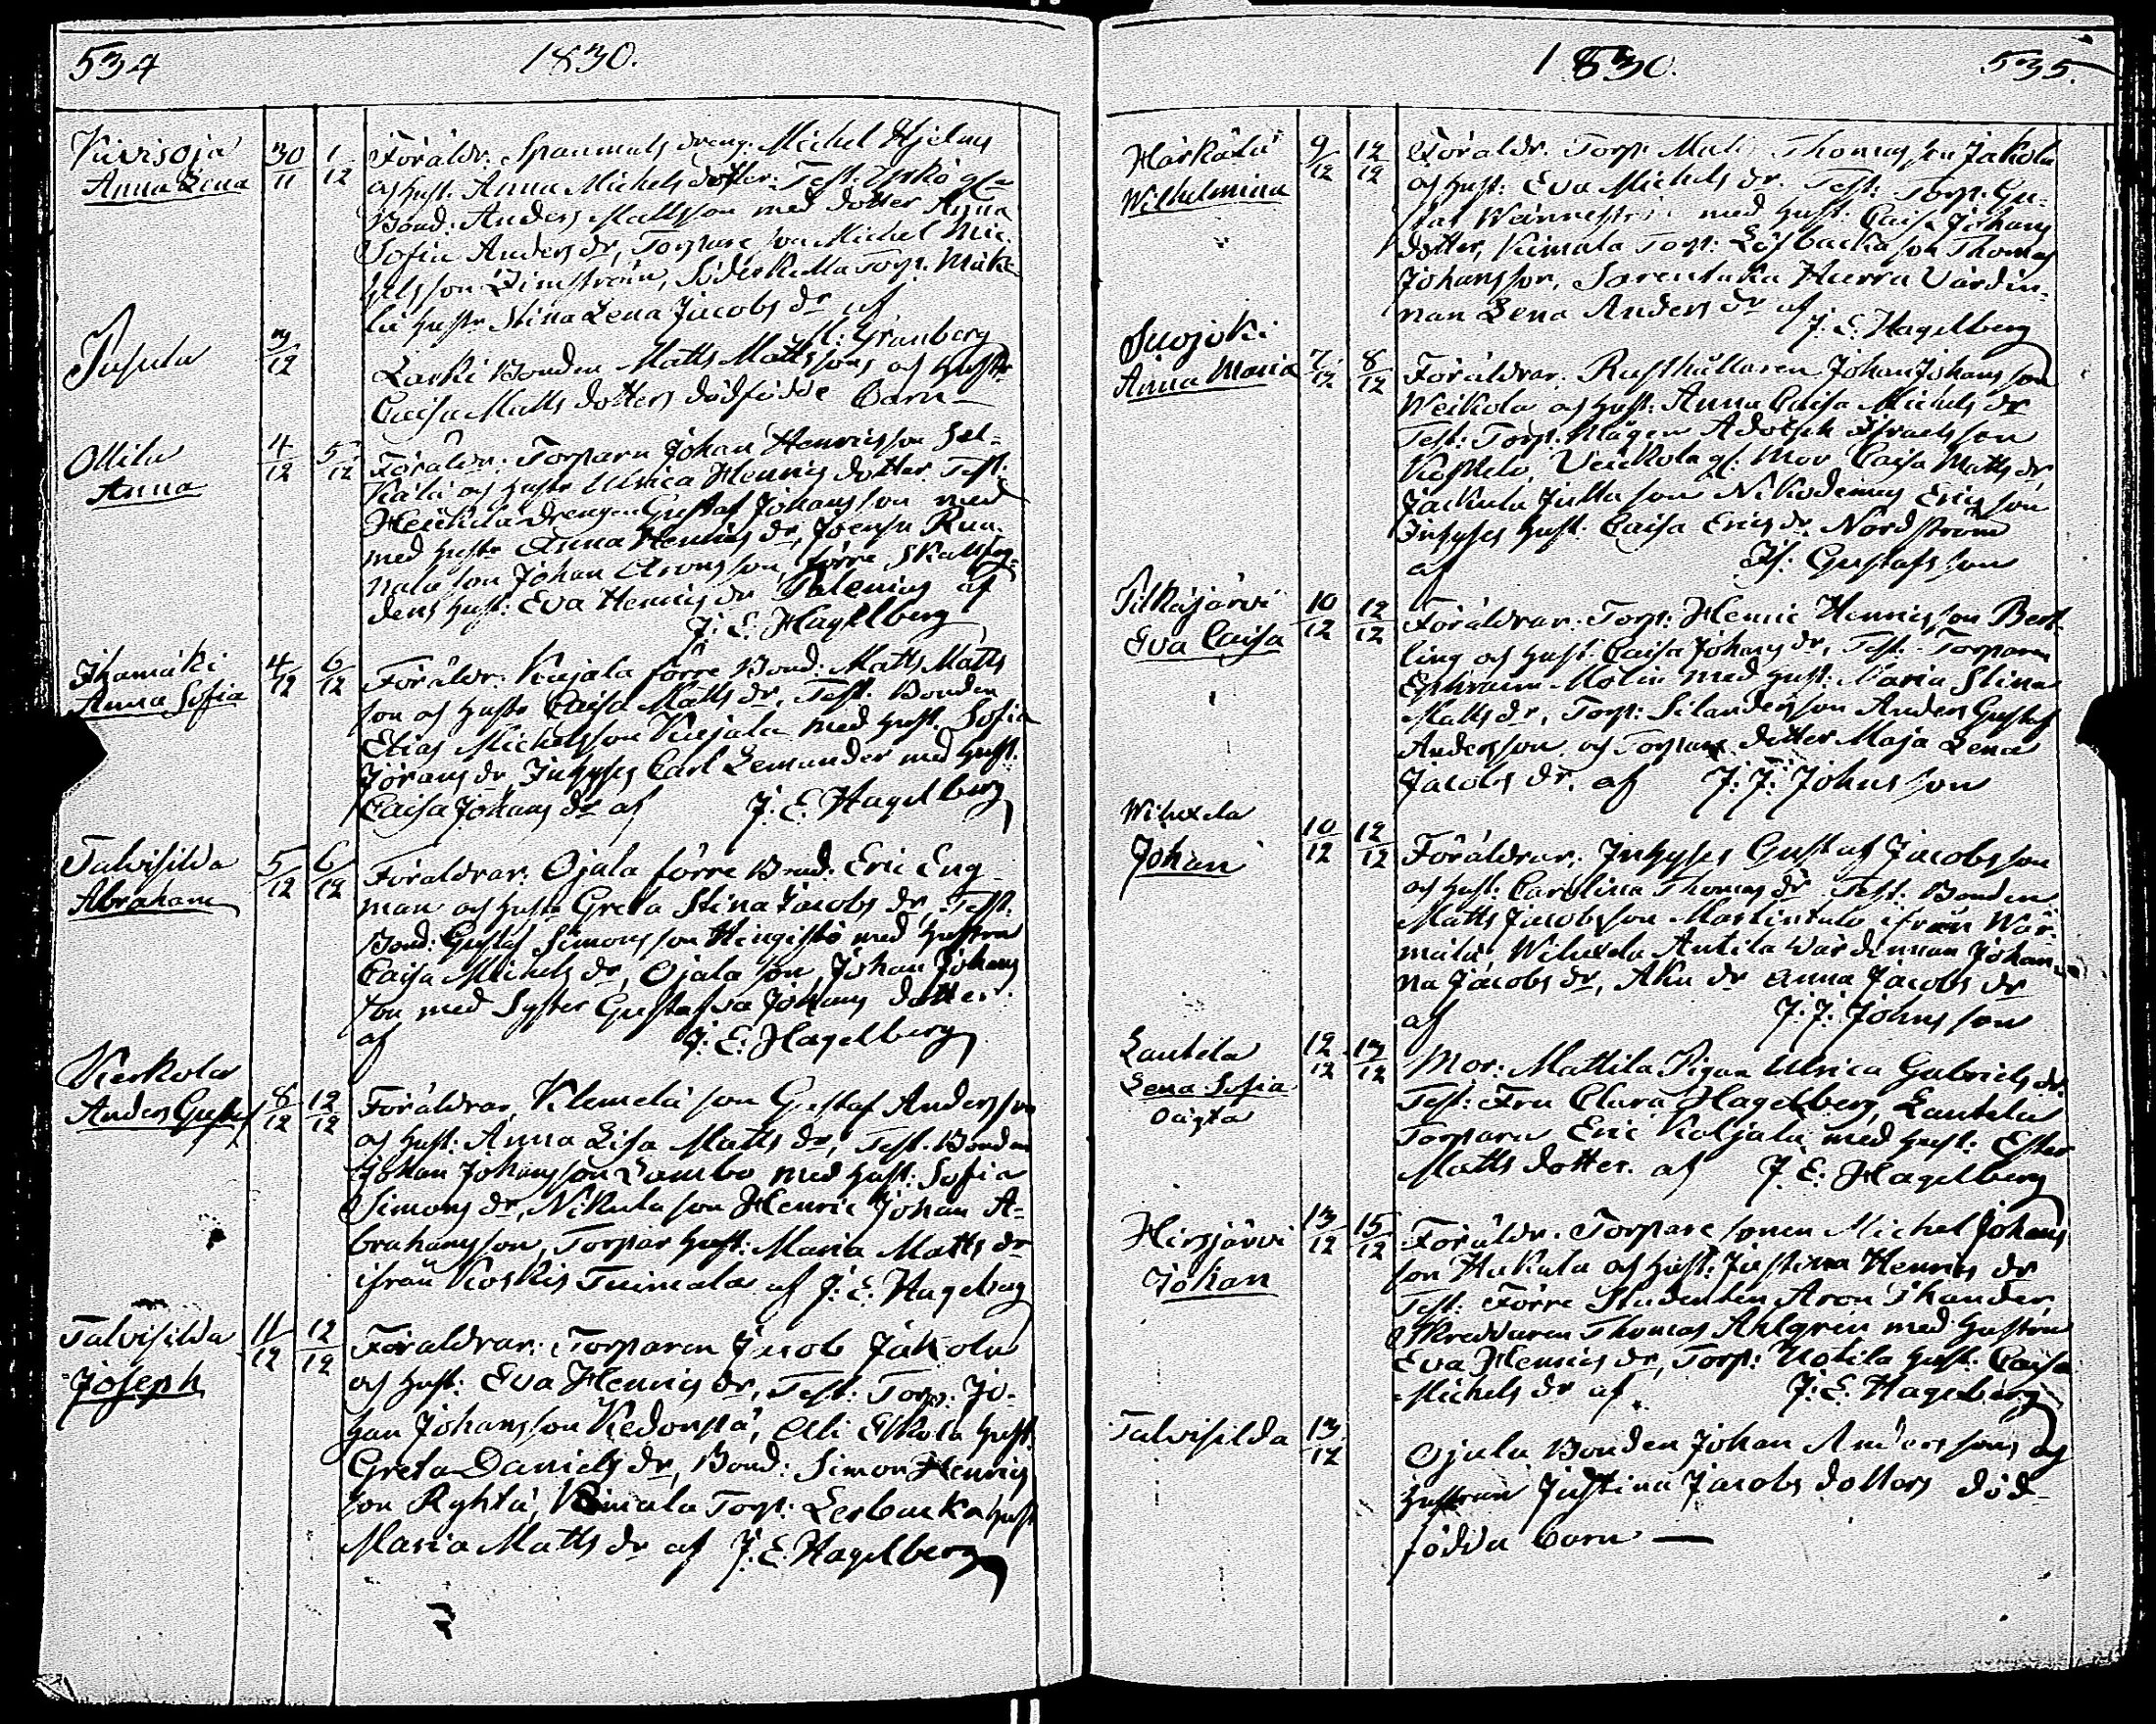 534
1830.
Kuvisoja
Anna Lena
30/11
1/12
Föräldr: Spanmåls dreng: Michel Hjelms
og hust: Anna Michels dotter. Test:
Bond: Anders Mattsson med dotter Anna
Sofia Anders dr, Torpare son Michel Mic-
helsson Limström, Torp. Mäke-
lä hustr Stina Lena Jacobs dr af
M: Granberg
Pusula
3/12
Larki Bonden Matts Mattssons og hustr
Caisa Matts dotters dödfödde Barn
Ollila
Anna
4/12
5/12
Föräldr: Torparn Johan Henricsson Sel-
kälä og hustr Ulrica Henrics dotter. Test:
Heikkilä drengen Gustaf Johansson med
med hustr Anna Henrics dr, Joensu Run-
nala son Johan Aronsson, förre Skallfog-
dens hust: Eva Henrics dr Palenius af
J: E: Hagelberg
Ihamäki
Anna Sofia
4/12
6/12
Föräldr: Kujala förre Bond: Matts Matts
son og hustr Caisa Matts dr, Test. Bonden
Elias Michelsson Kujala med hust. Sofia
Jörans dr, Inhyses Carl Lemander med hust:
Caisa Johans dr af J. E. Hagelberg
Talvisilda
Abraham
5/12
6/12
Föräldrar: Ojala förre Bond: Eric Eng-
man og hustr Greta Stina Jacobs dr, Test:
Bond: Gustaf Simonsson Hingistö med hustru
Caisa Michels dr, Ojala son Johan Johans
son med Syster Gustafva Johans dotter
af J: E: Hagelberg
Kerkola
Anders Gustaf
8/12
12/12
Föräldrar, Klemelä son Gustaf Andersson
og hust: Anna Lisa Matts dr, Test. Bonden
Johan Johansson Lambo med hust: Sofia
Simons dr, Nikula son Henric Johan A-
brahamsson, Torpar hust: Maria Matts dr
ifrån Koskis Tuimala af J: E: Hagelberg
Talvisilda
Joseph
11/12
12/12
Föräldrar: Torparen Jacob Jakola
og hust: Eva Henrics dr, Test: Torp: Jo-
han Johansson Kedonpä, Ali Eskola hust.
Greta Daniels dr, Bond: Simon Henrics
son Ryhtä, Kimala Torp: Lerbacka hust
Maria Matts dr af J. E. Hagelberg
1830.
535.
Härkälä
Wilhelmina
9/12
12/12
Föräldr. Torp: Thomas son Jakola
og hust: Eva Michels dr. Test: Torp: Gu-
staf med hust: Caisa Johans
dotter, Kimala Torp: Löfbacka son Thomas
Johansson, Sarentaka Hurra Värdin-
nan Lena Anders dr af
J. E. Hagelberg
Suojoki
Anna Maria
7/12
8/12
Föräldrar: Rusthållaren Johan Johansson
Weikola og hust: Anna Caisa Michels dr
Test: Torp: Mågen Adolph Israelsson
Veikola gl: Mor Caisa Matts dr,
Jackula Julla son Nikodemus Ericsson
Inhyses hust: Caisa Erics dr Nordström
af Is: Gustafsson
Pitkäjärvi
Eva Caisa
10/12
12/12
Föräldrar: Torp: Henric Henricsson Bert-
ling og hust: Caisa Johans dr, Test: Torparen
Ephraim Molin med hust: Maria Stina
Matts dr, Torp: Silanders son Anders Gustaf
Andersson og Torpare dotter Maja Lena
Jacobs dr. af J: J: Johnsson
Wiluxela
Johan
10/12
12/12
Föräldrar: Inhyses Gustaf Jacobsson
og hust: Carolina Thomas dr Test: Bonden
Matts Jacobsson Martintalo ifrån Wär-
mälä, Wiluxela Antila Värdinnan Johan-
na Jacobs dr, Aku dr Anna Jacobs dr
af J: J: Johnsson
Lautela
Lena Sofia
oägta
12/12
13/12
Mor: Mattila Pigan Ulrica Gabriels dr
Test: Fru Clara Hagelberg, Lautela
Torparn Eric Koljala med hust: Ester
Matts dotter. af J. E: Hagelberg
Hirsjärvi
Johan
13/12
15/12
Föräldr. Torpare sonen Michel Johans
son Hukula og hust: Justina Henrics dr
Test: Förre Studenten Aron Thander,
Skreddaren Thomas Ahlgren med hustru
Eva Henrics dr, Torp: Uotila hust: Caisa
Michels dr af J: E: Hagelberg
Talvisilda
13/12
Ojala Bonden Johan Anderssons og
hustrun Justina Jacobs dotters död
födda barn —